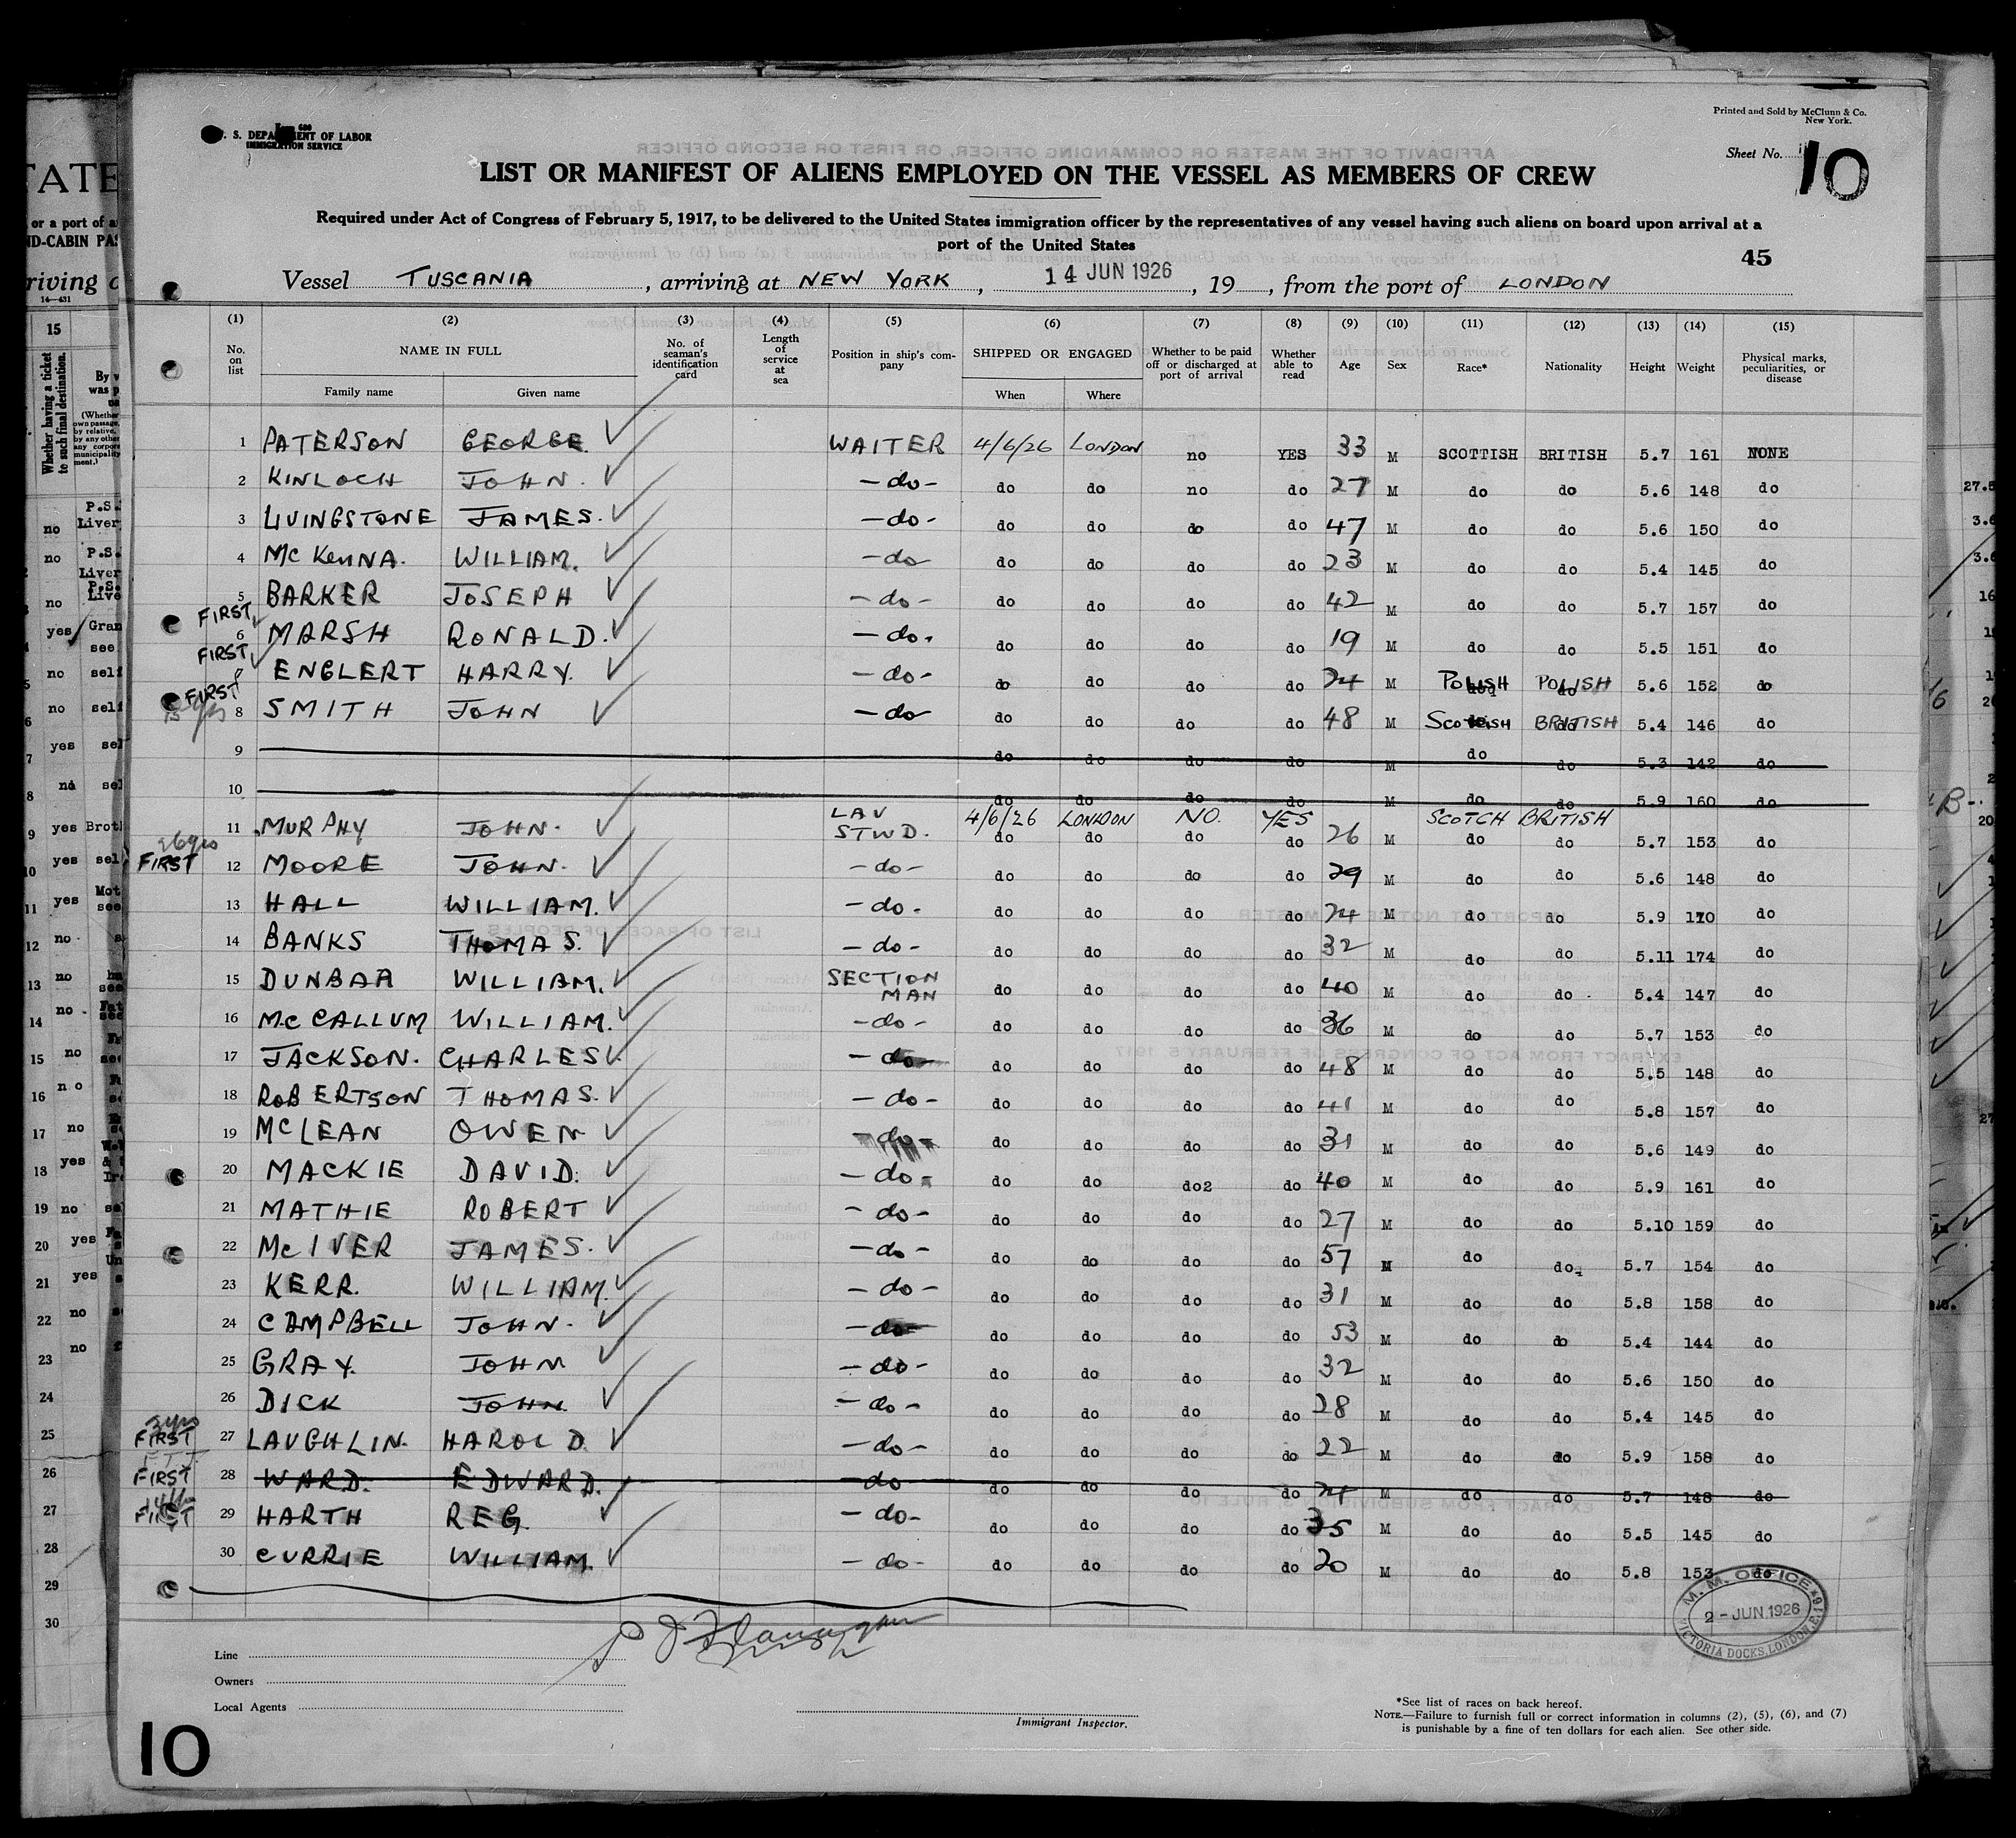 Printed and Sold by McClunn & Co.
New York.
S. DEPARTMENT OF LABOR
IMMIGRATION SERVICE
Sheet No. 10
LIST OR MANIFEST OF ALIENS EMPLOYED ON THE VESSEL AS MEMBERS OF CREW
Required under Act of Congress of February 5, 1917, to be delivered to the United States immigration officer by the representatives of any vessel having such aliens on board upon arrival at a
port of the United States
45
Vessel TUSCANIA, arriving at NEW YORK, 14 JUN 1926, 19 , from the port of LONDON
(1) (2) (3) (4) (5) (6) (7) (8) (9) (10) (11) (12) (13) (14) (15)
No. on list NAME IN FULL No. of seaman's identification card Length of service at sea Position in ship's company SHIPPED OR ENGAGED Whether to be paid off or discharged at port of arrival Whether able to read Age Sex Race* Nationality Height Weight Physical marks, peculiarities, or disease
Family name Given name When Where
1 PATERSON GEORGE. WAITER 4/6/26 LONDON no YES 33 M SCOTTISH BRITISH 5.7 161 NONE
2 KINLOCH JOHN. -do- do do no do 27 M do do 5.6 148 do
3 LIVINGSTONE JAMES. -do- do do do do 47 M do do 5.6 150 do
4 McKENNA. WILLIAM. -do- do do do do 23 M do do 5.4 145 do
5 BARKER JOSEPH -do- do do do do 42 M do do 5.7 157 do
FIRST 6 MARSH RONALD. -do. do do do do 19 M do do 5.5 151 do
FIRST ENGLERT HARRY. -do- do do do do 24 M POLISH POLISH 5.6 152 do
FIRST 8 SMITH JOHN -do- do do do do 48 M SCOTTISH BRITISH 5.4 146 do
9 do do do do M do do 5.3 142 do
10 do do do do M do do 5.9 160 do
LAV 4/6/26 LONDON NO. YES SCOTCH BRITISH
11 MURPHY JOHN. STWD. do do do do 26 M do do 5.7 153 do
FIRST 12 MOORE JOHN. -do- do do do do 29 M do do 5.6 148 do
13 HALL WILLIAM. -do- do do do do 24 M do do 5.9 170 do
14 BANKS THOMAS. -do- do do do do 32 M do do 5.11 174 do
15 DUNBAR WILLIAM. SECTION MAN do do do do 40 M do do 5.4 147 do
16 McCALLUM WILLIAM. -do- do do do do 36 M do do 5.7 153 do
17 JACKSON. CHARLES -do- do do do do 48 M do do 5.5 148 do
18 ROBERTSON THOMAS. -do- do do do do 41 M do do 5.8 157 do
19 McLEAN OWEN -do- do do do do 31 M do do 5.6 149 do
20 MACKIE DAVID. -do- do do do2 do 40 M do do 5.9 161 do
21 MATHIE ROBERT -do- do do do do 27 M do do 5.10 159 do
22 McIVER JAMES. -do- do do do do 57 M do do 5.7 154 do
23 KERR. WILLIAM. -do- do do do do 31 M do do 5.8 158 do
24 CAMPBELL JOHN. -do- do do do do 53 M do do 5.4 144 do
25 GRAY. JOHN -do- do do do do 32 M do do 5.6 150 do
26 DICK JOHN. -do- do do do do 28 M do do 5.4 145 do
FIRST 27 LAUGHLIN. HAROLD. -do- do do do do 22 M do do 5.9 158 do
FIRST 28 WARD. EDWARD. -do do do do do 24 M do do 5.7 148 do
FIRST 29 HARTH REG. -do- do do do do 35 M do do 5.5 145 do
30 CURRIE WILLIAM. -do- do do do do 20 M do do 5.8 153 do
M. M. OFFICE
2 - JUN. 1926
VICTORIA DOCKS, LONDON, E.16
Line
Owners
Local Agents
Immigrant Inspector.
*See list of races on back hereof.
NOTE.—Failure to furnish full or correct information in columns (2), (5), (6), and (7)
is punishable by a fine of ten dollars for each alien. See other side.
10